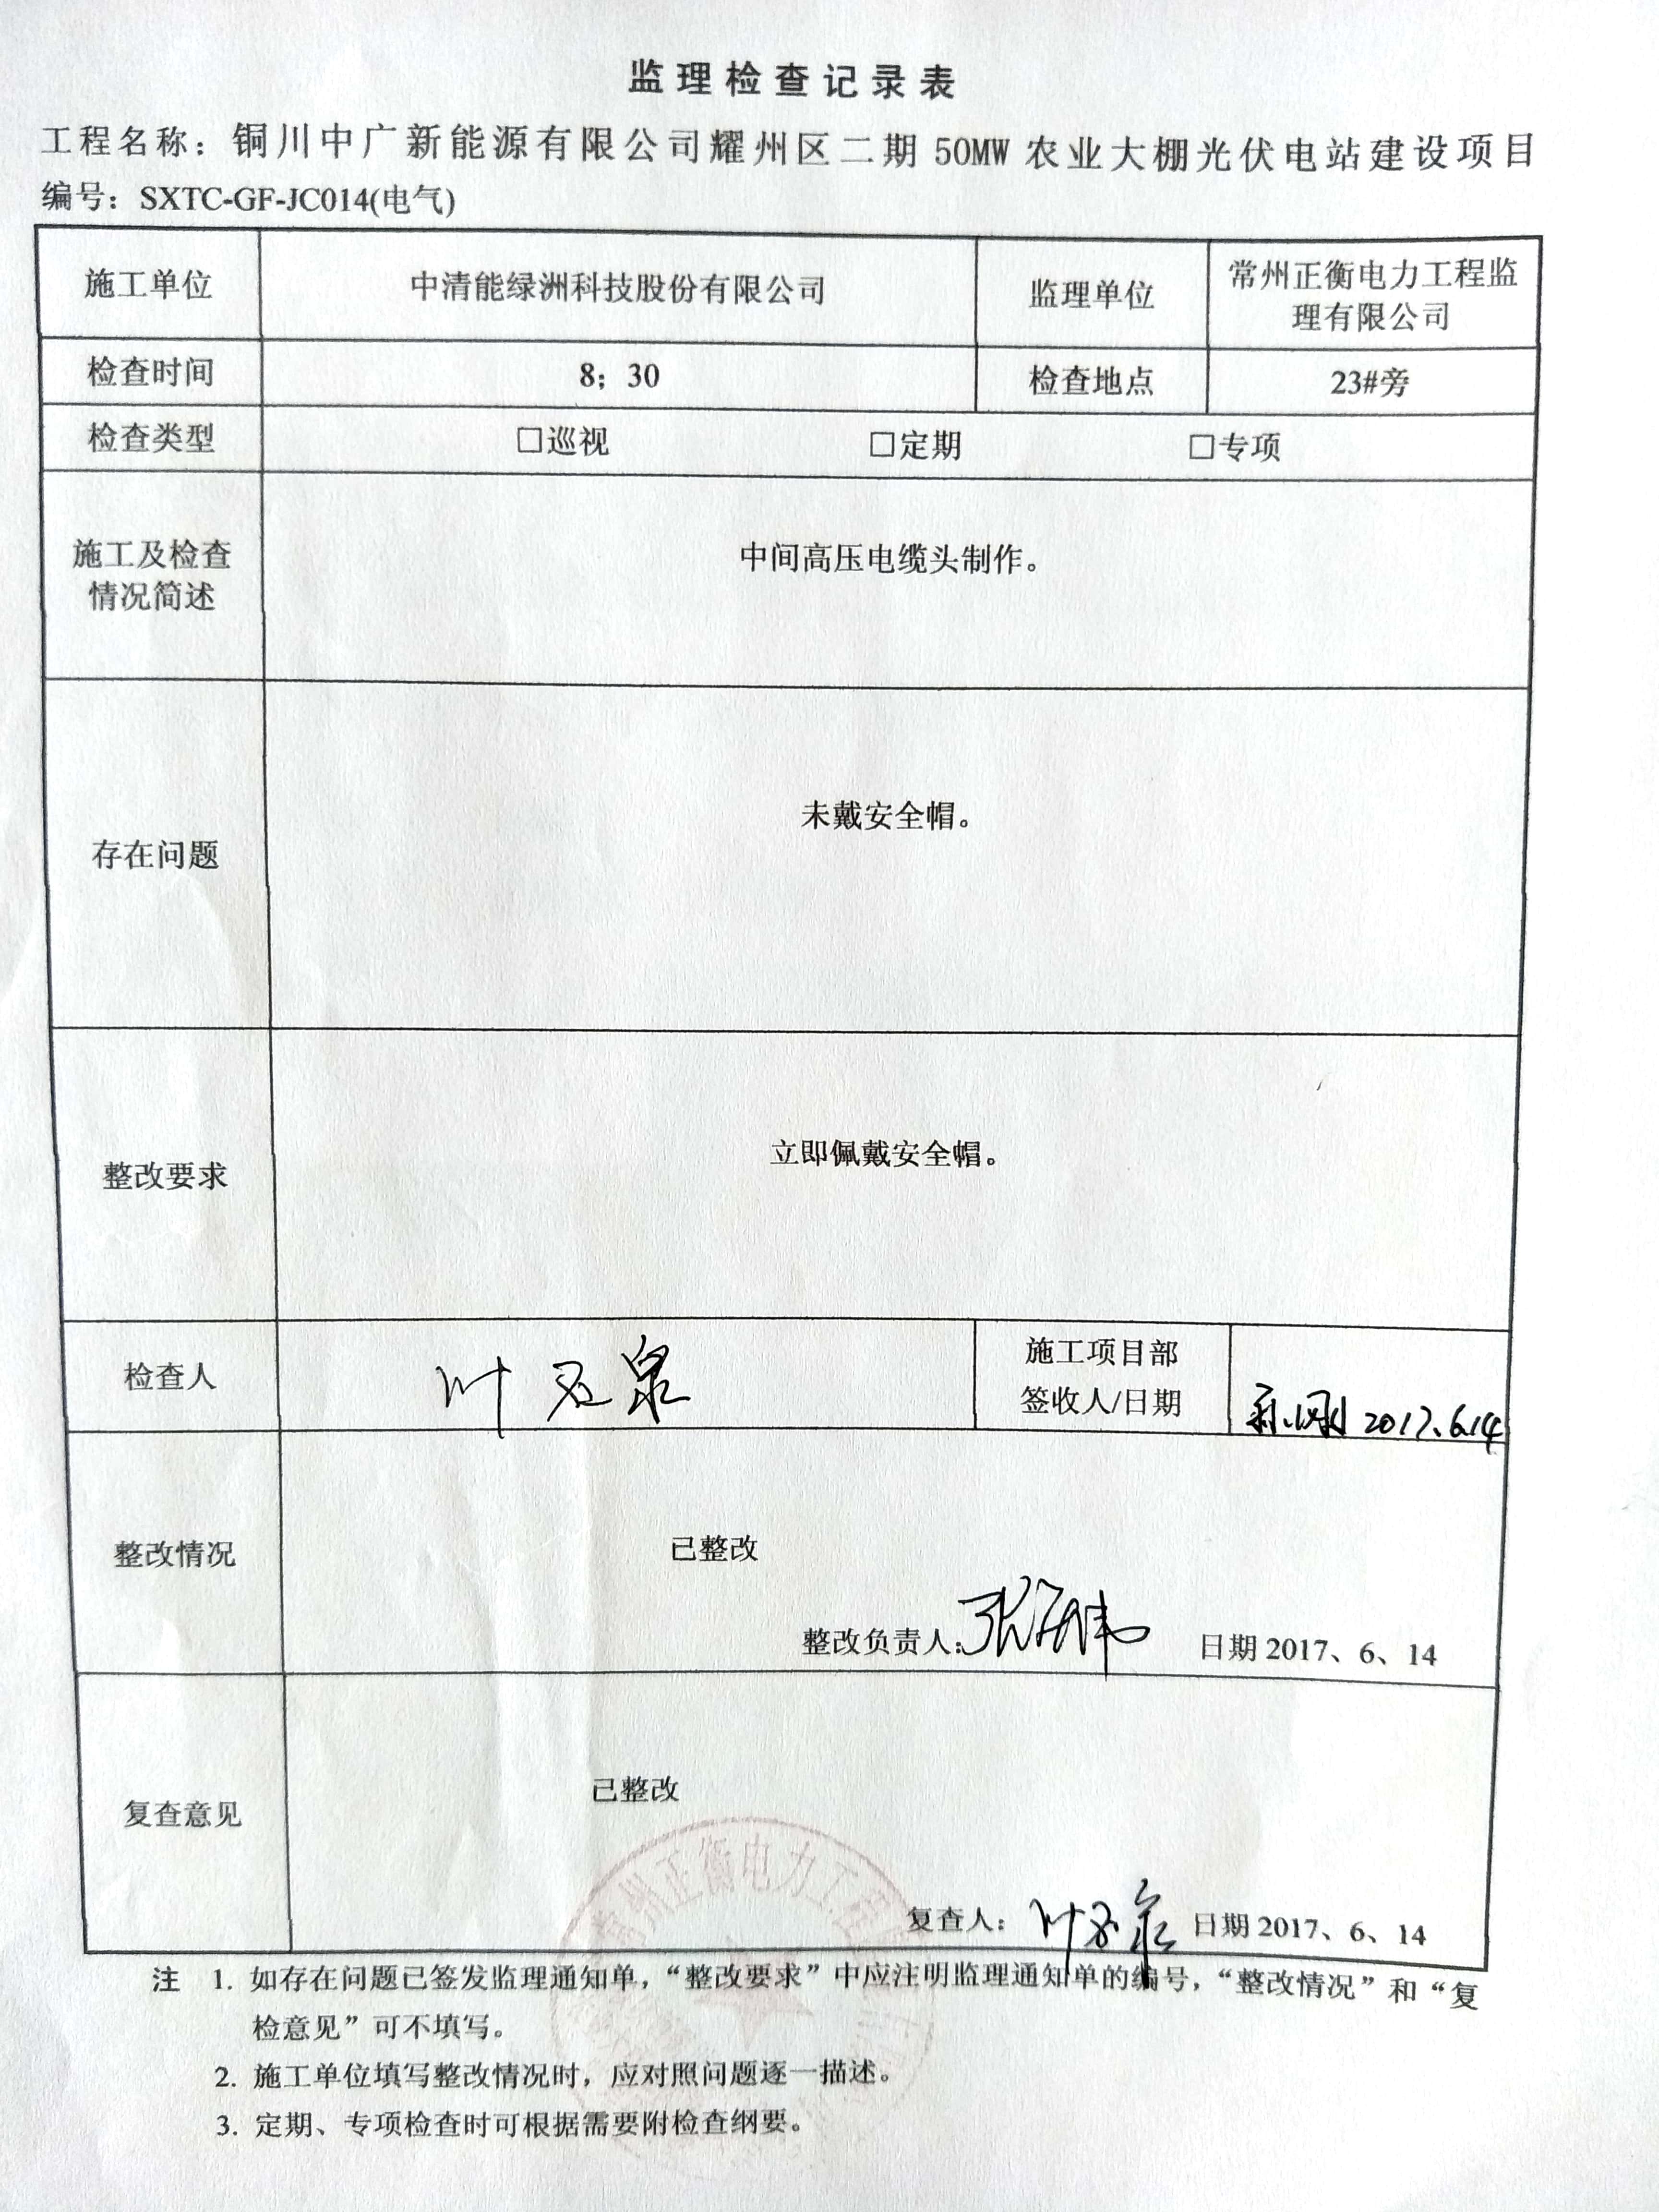 监理检查记录表
工程名称：铜川中广新能源有限公司耀州区二期 50MW 农业大棚光伏电站建设项目
编号：SXTC-GF-JC014(电气)
施工单位 中清能绿洲科技股份有限公司 监理单位 常州正衡电力工程监
理有限公司
检查时间 8；30 检查地点 23#旁
检查类型 □巡视 □定期 □专项
施工及检查
情况简述
中间高压电缆头制作。
存在问题
未戴安全帽。
整改要求
立即佩戴安全帽。
检查人 叶 泉
施工项目部
签收人/日期
2017.6.14
整改情况
已整改
整改负责人: 张 日期 2017、6、14
复查意见
已整改
复查人： 叶 泉 日期 2017、6、14
注 1. 如存在问题已签发监理通知单，“整改要求”中应注明监理通知单的编号，“整改情况”和“复
检意见”可不填写。
2. 施工单位填写整改情况时，应对照问题逐一描述。
3. 定期、专项检查时可根据需要附检查纲要。
州正衡电力工程